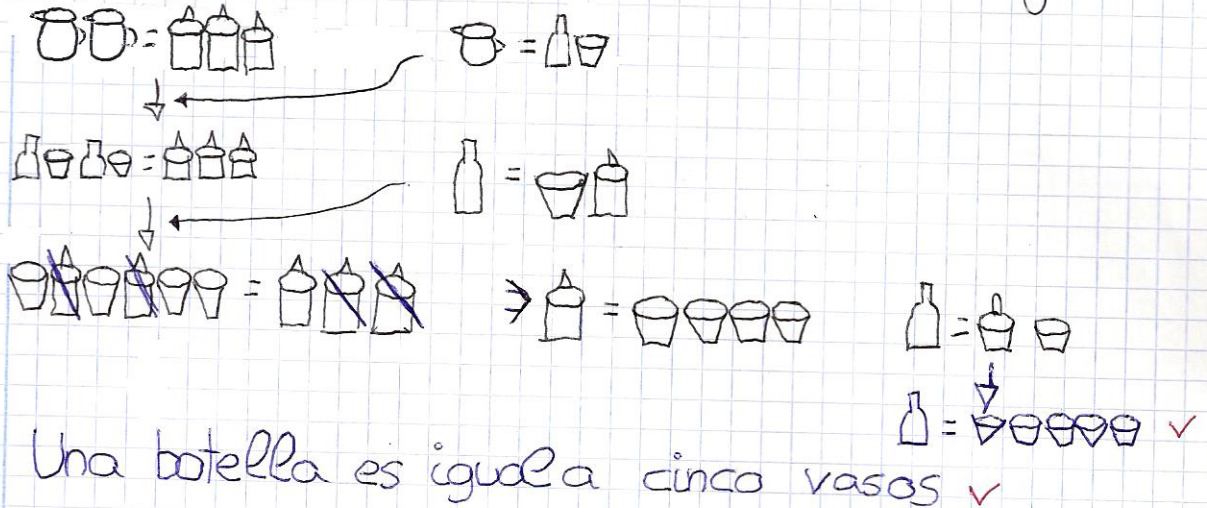 Una botella es igual a cinco vasos